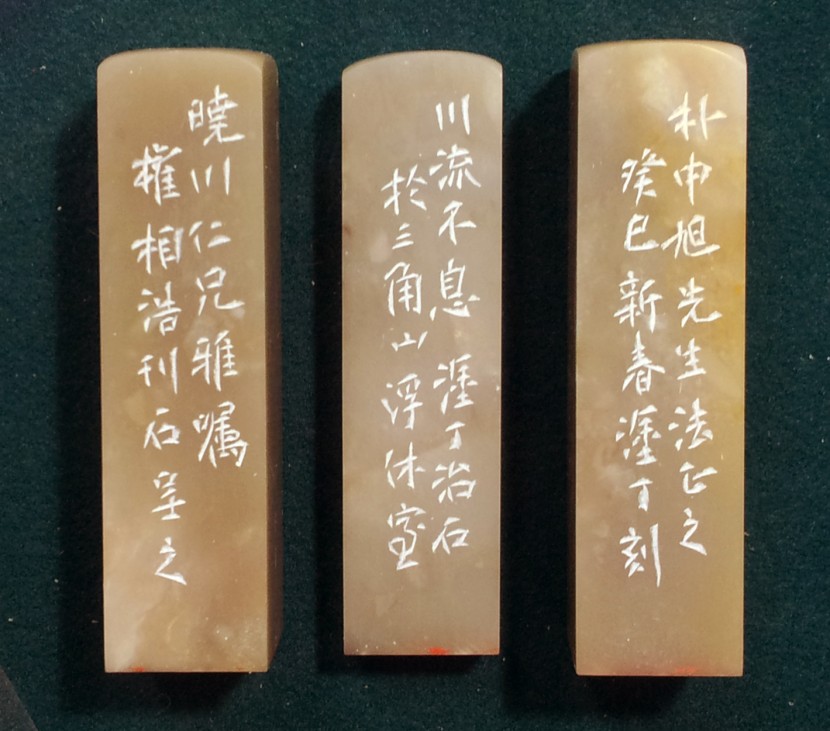 朴申旭先生法正之
癸巳新春塗丁刻
川流不息 塗丁治石
於三角山浮休室
曉川仁兄雅嘱
權相浩刊石呈之